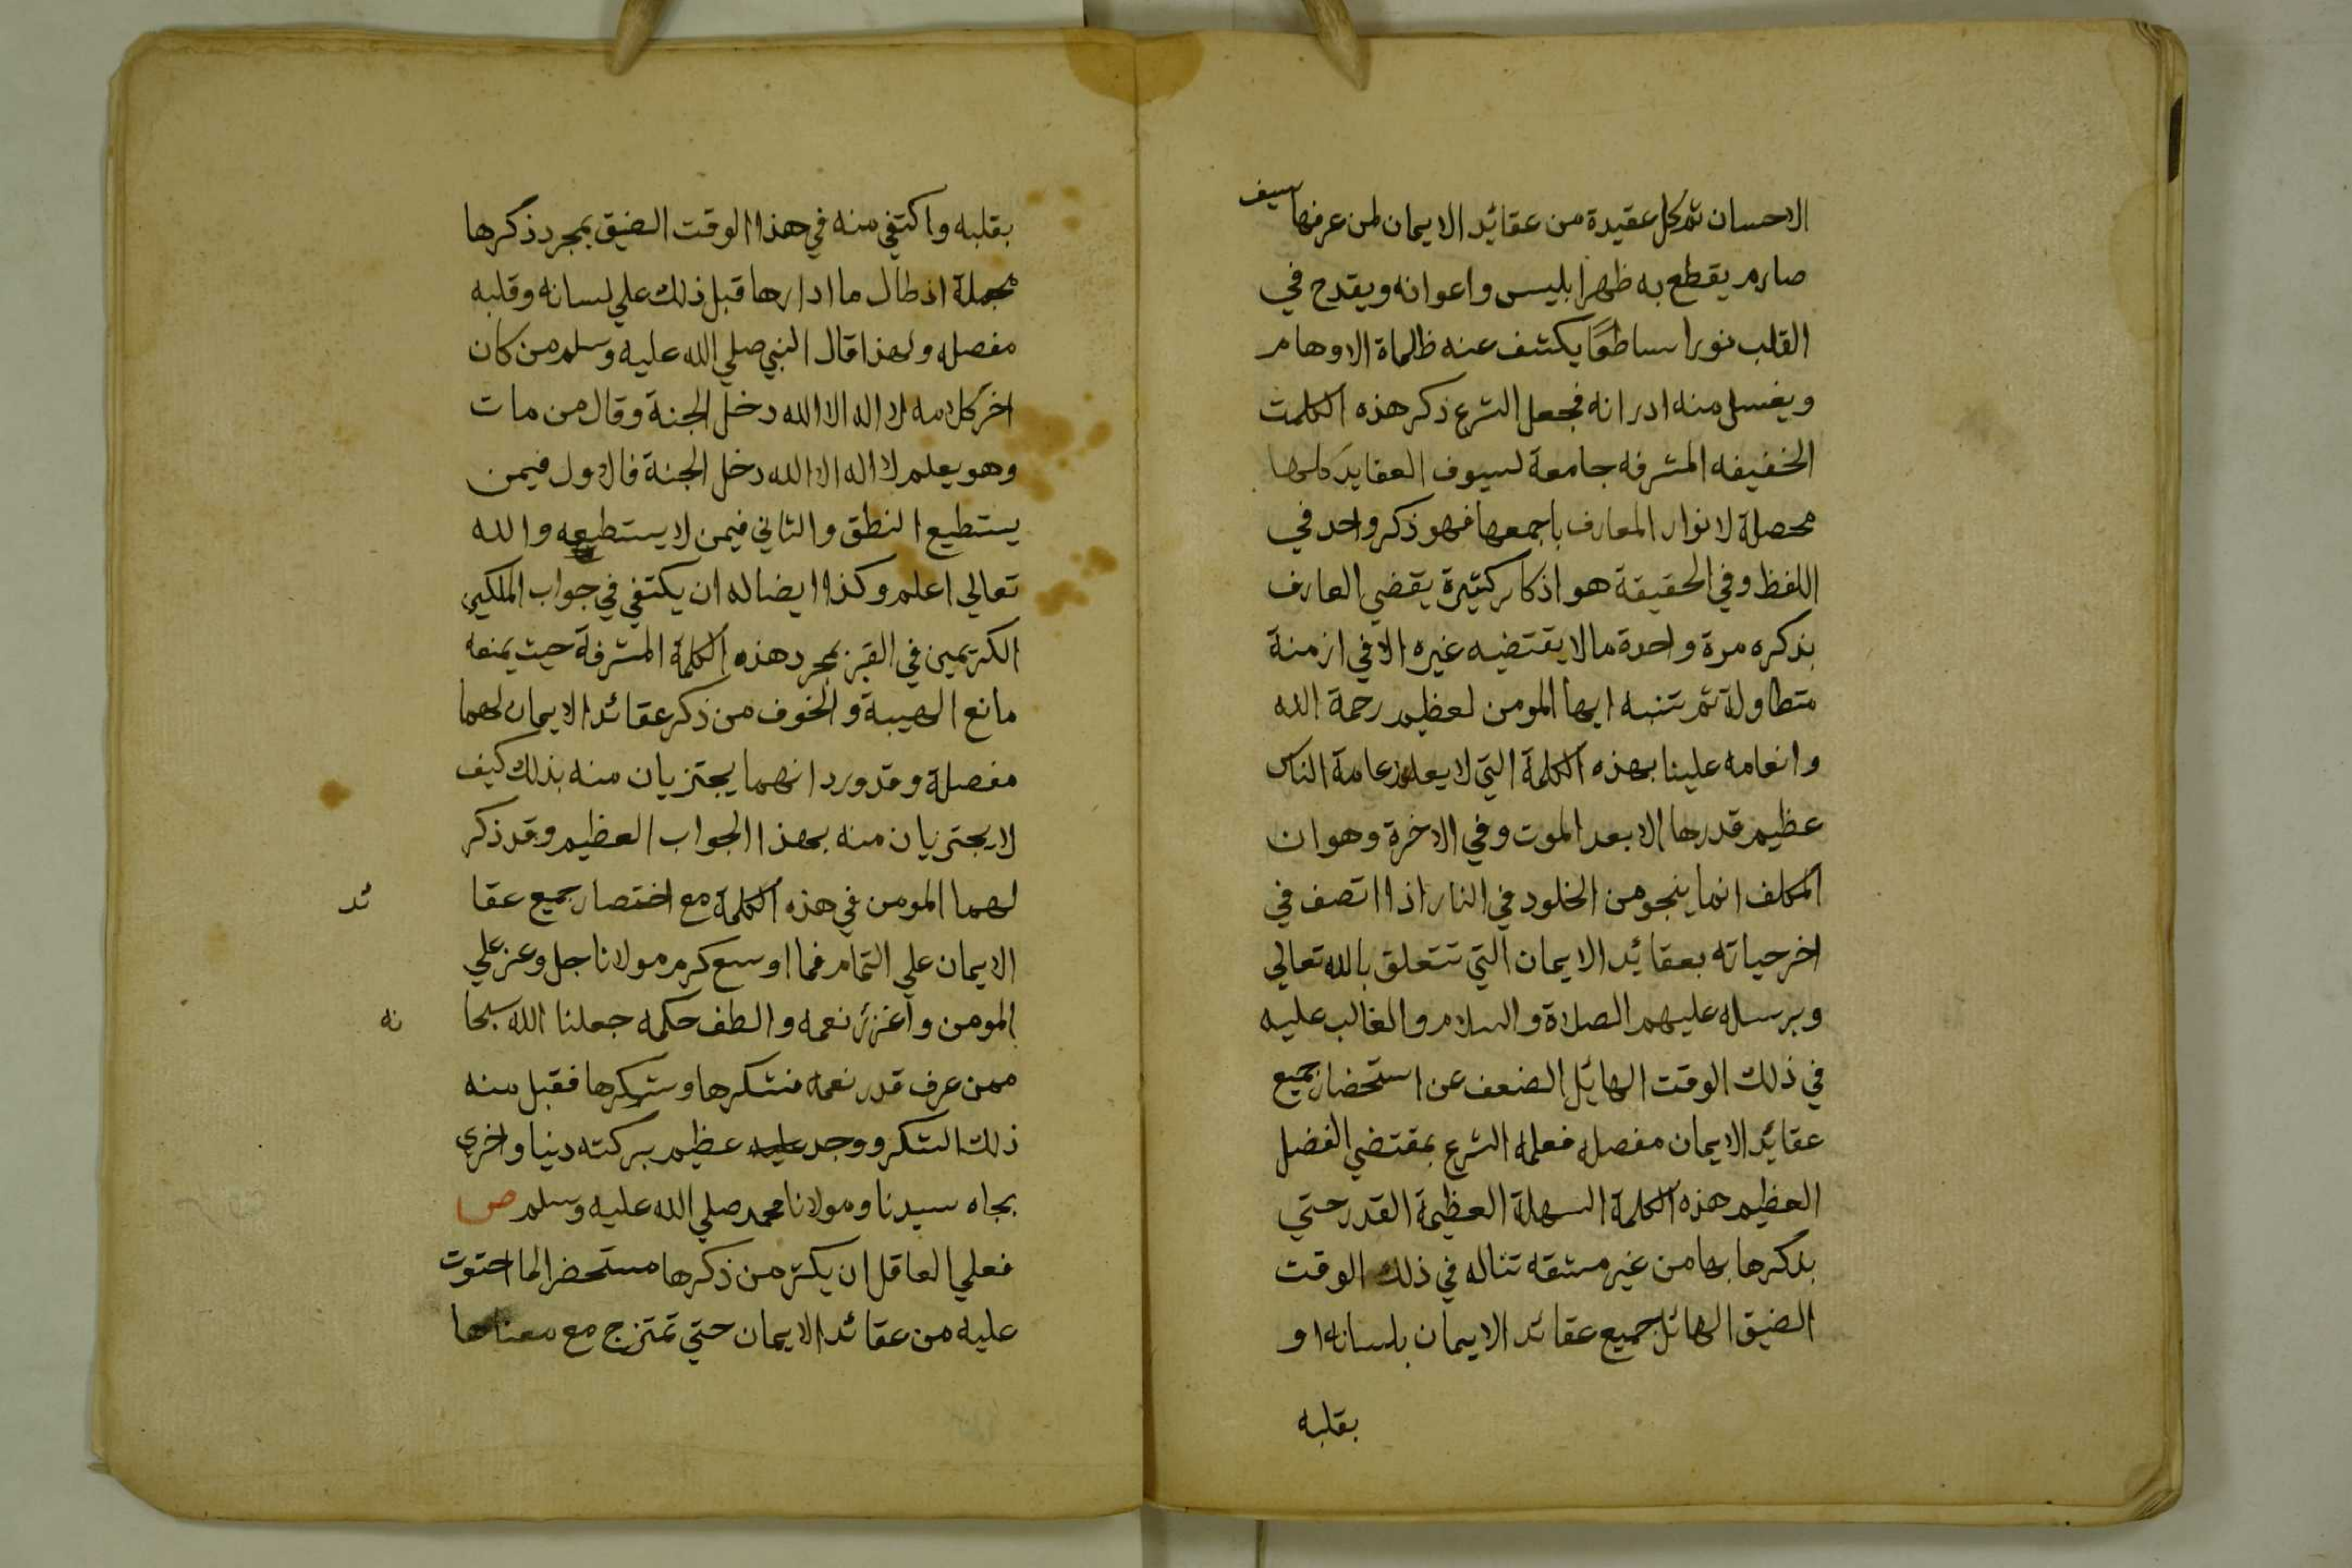 الاحسان ثم كل عقيدة من عقائد الايمان لمن عرفها سيف
صارم يقطع به ظهر ابليس واعوانه ويقدح في
القلب نورا ساطعًا يكشف عنه ظلماة الاوهام
ويغسل منه ادرانه فجعل الشرع ذكر هذه الكلمت
الخفيفه المشرفه جامعة لسيوف العقايد كلها
محصلة لانوار المعارف باجمعها فهو ذكر واحد في
اللفظ وفي الحقيقة هو اذكار كثيرة يقضي العارف
بذكره مرة واحدة ما لا يقتضيه غيره الا في ازمنة
متطاولة ثم تنبه ايها المومن لعظيم رحمة الله
وانعامه علينا بهذه الكلمة التي لا يعلم عامة الناس
عظيم قدرها الا بعد الموت وفي الاخرة وهو ان
المكلف انما ينجو من الخلود في النار اذا اتصف في
اخر حياته بعقائد الايمان التي تتعلق بالله تعالي
وبرسله عليهم الصلاة والسلام والغالب عليه
في ذلك الوقت الهائل الضعف عن استحضار جميع
عقائد الايمان مفصله فعلمه الشرع بمقتضي الفضل
العظيم هذه الكلمة السهلة العظيمة القدر حتي
بذكرها بها من غير مشقه تناله في ذلك الوقت
الضيق الهائل جميع عقائد الايمان بلسانه او
بقلبه
بقلبه واكتفي منه في هذا الوقت الضيق بمجرد ذكرها
مجملة اذ طال ما ادارها قبل ذلك علي لسانه وقلبه
مفصله ولهذا قال النبي صلي الله عليه وسلم من كان
اخر كلامه لا اله الا الله دخل الجنة وقال من مات
وهو يعلم لا اله الا الله دخل الجنة فالاول فيمن
يستطيع النطق والثاني فيمن لا يستطيعه والله
تعالي اعلم وكذا ايضا له ان يكتفي في جواب الملكين
الكريمين في القبر بمجرد هذه الكلمة المشرفة حيث يمنعه
مانع الهيبة والخوف من ذكر عقائد الايمان لهما
مفصلة وقد ورد انهما يجتزيان منه بذلك كيف
لا يجتزيان منه بهذا الجواب العظيم وقد ذكر
لهما المومن في هذه الكلمة مع اختصار جميع عقا ئد
الايمان علي التمام فما اوسع كرم مولانا جل وعز علي
المومن واغزر نعمه والطف حكمه جعلنا الله سبحا نه
ممن عرف قدر نعمه فشكرها وشكرها فقبل منه
ذلك الشكر ووجد عليه عظيم بركته دنيا واخري
بجاه سيدنا ومولانا محمد صلي الله عليه وسلم ص
فعلي العاقل ان يكثر من ذكرها مستحضرا لما احتوت
عليه من عقائد الايمان حتي تمتزج مع معناها